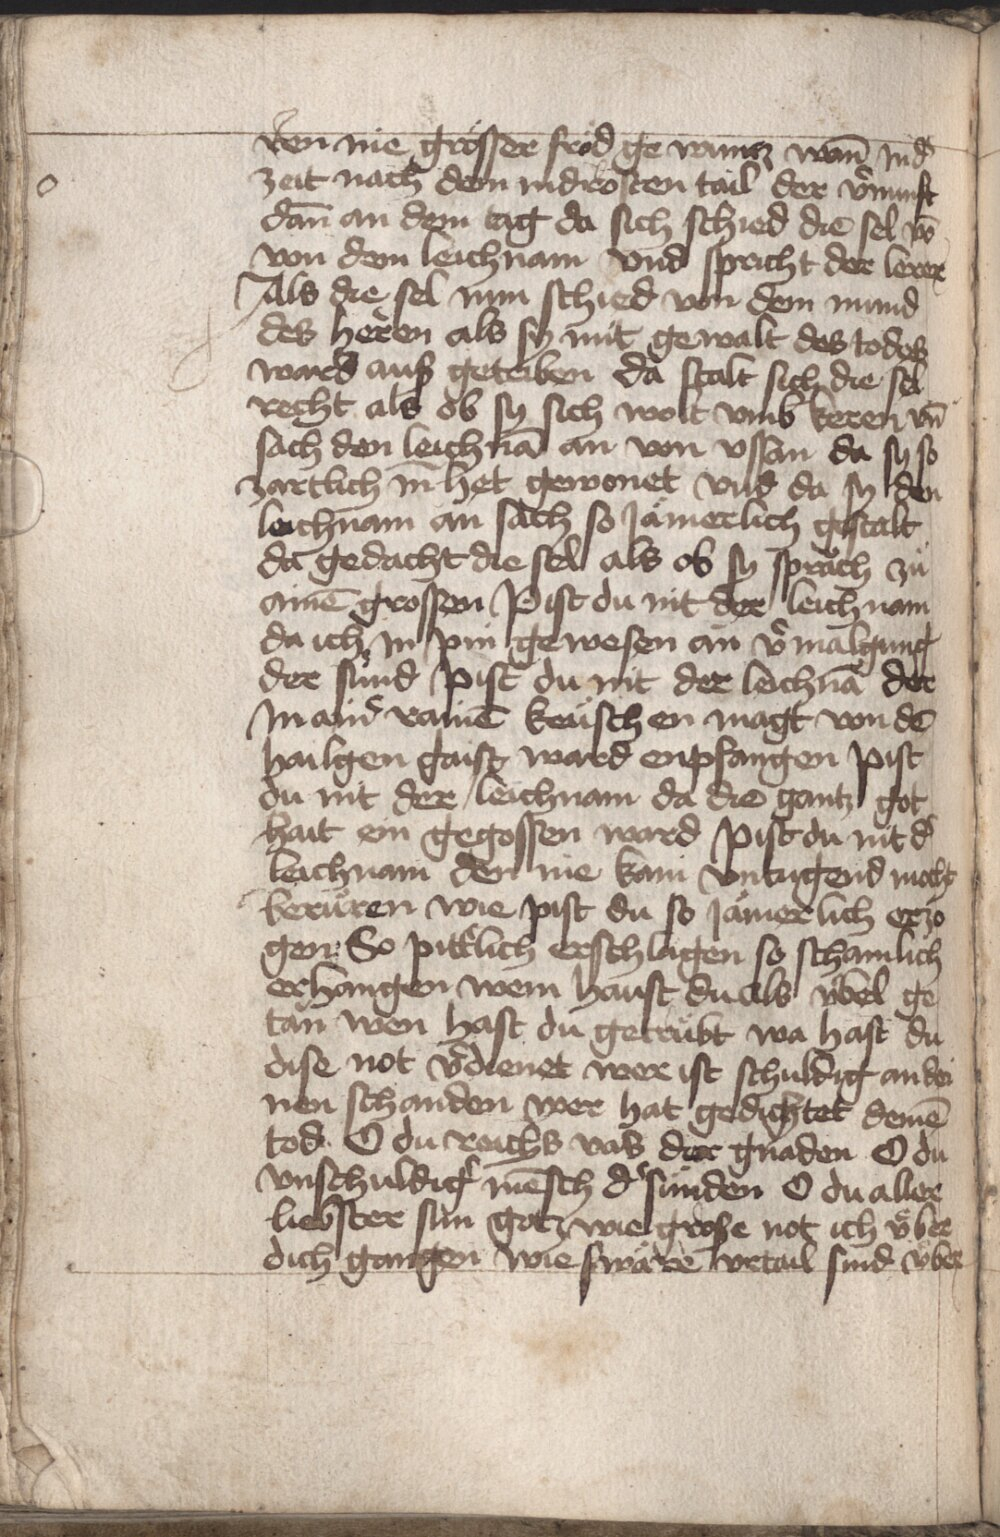 ren nie grösser fröd ge wuntz wan̄ in d᷑
zeit nach dem nidrosten tail der v᷑nunft
dan̄ an dem tag da sich schied die sel vō
von dem leichnam vnd spricht der lerer
Als die sel nun schied von dem mund
des heren als sy mit gewalt des todes
ward auß getriben da stalt sich die sel
recht als ob sy sich wolt vmb keren vn̄
sach den leichnā an von vssan da sy so
zartlich in̄ het gewonet vnd da sy den
leichnam an sach so jämerlich gestalt
da gedacht die sel als ob sy spräch zů
ainē grossen Pist du nit der leichnam
da ich in pin gewesen an v᷑malgung
der sünd pist du nit der leichnā der
In ain᷑ rainē keüschen magt von dē
hailgen gaist ward enpfangen pist
du nit der leichnam da die gantz got
hait ein gegossen ward pist du nit d᷑
leichnam den nie kain vntugend mocht
berüren wie pist du so jämerlich erzo
gen So pitt᷑lich erschlagen so schamlich
erhangen wem haust du als v̈bel ge
tän wen hast du getrübt wa hast du
dise not v᷑dienet wer ist schuldig an dei
nen schanden wer hat gedichtet deinē
tod O du reichs vas der gnaden O du
vnschuldig᷑ mēsch d᷑ sünden O du aller
liebster sun gotz wie große not ich v̈ber
dich gangen wie swäre vrtail sind v̈ber